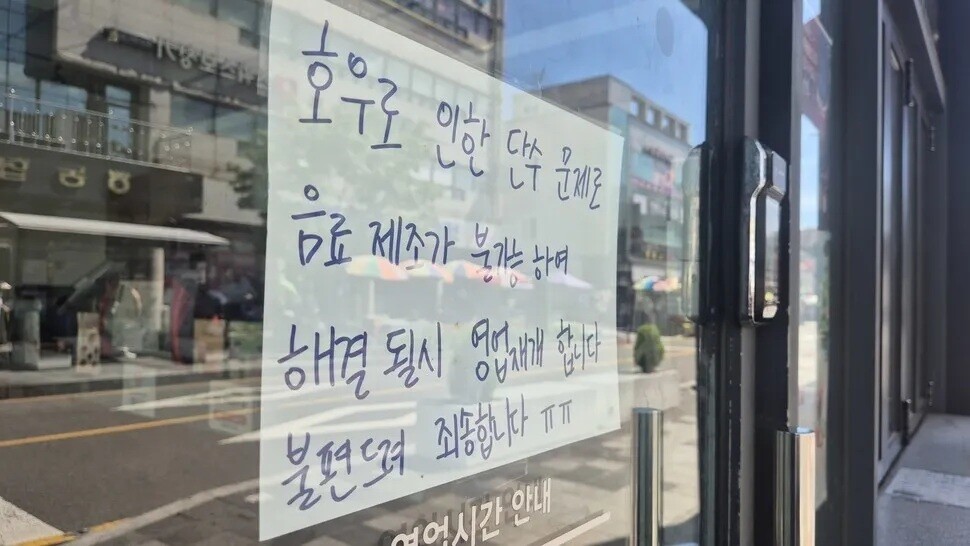 호우로 인한 단수 문제로
음료 제조가 불가능 하여
해결 될시 영업재개 합니다
불편드려 죄송합니다 ㅠㅠ
영업시간 안내